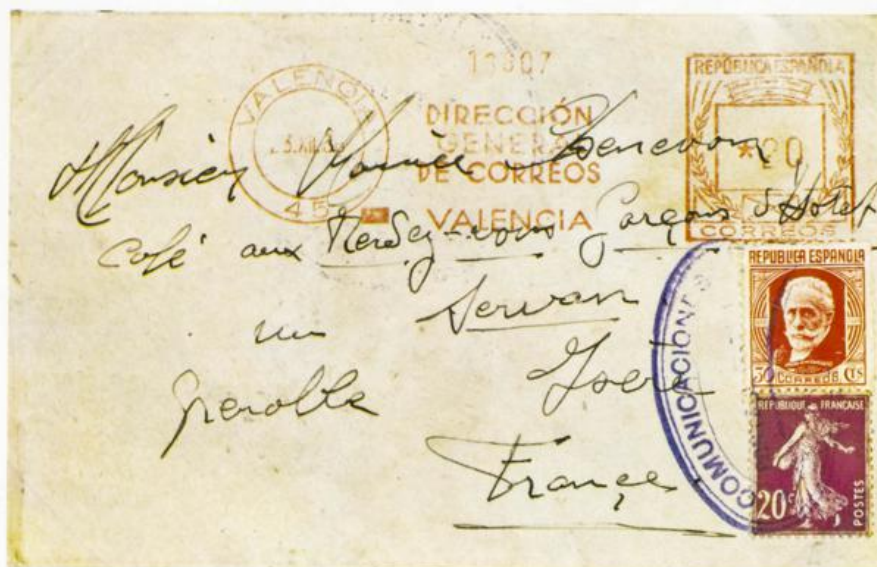 13007
VALENCIA
45
DIRECCIÓN
GENERAL
DE CORREOS
VALENCIA
REPÚBLICA ESPAÑOLA
*20
CORREOS
Monsieur Maurice
Café aux Rendez-vous Garçons d'Hotel
Servan
Isère
Grenoble
France
COMUNICACIONES
REPUBLICA ESPAÑOLA
30 CORREOS CTS
REPUBLIQUE FRANÇAISE
20c POSTES